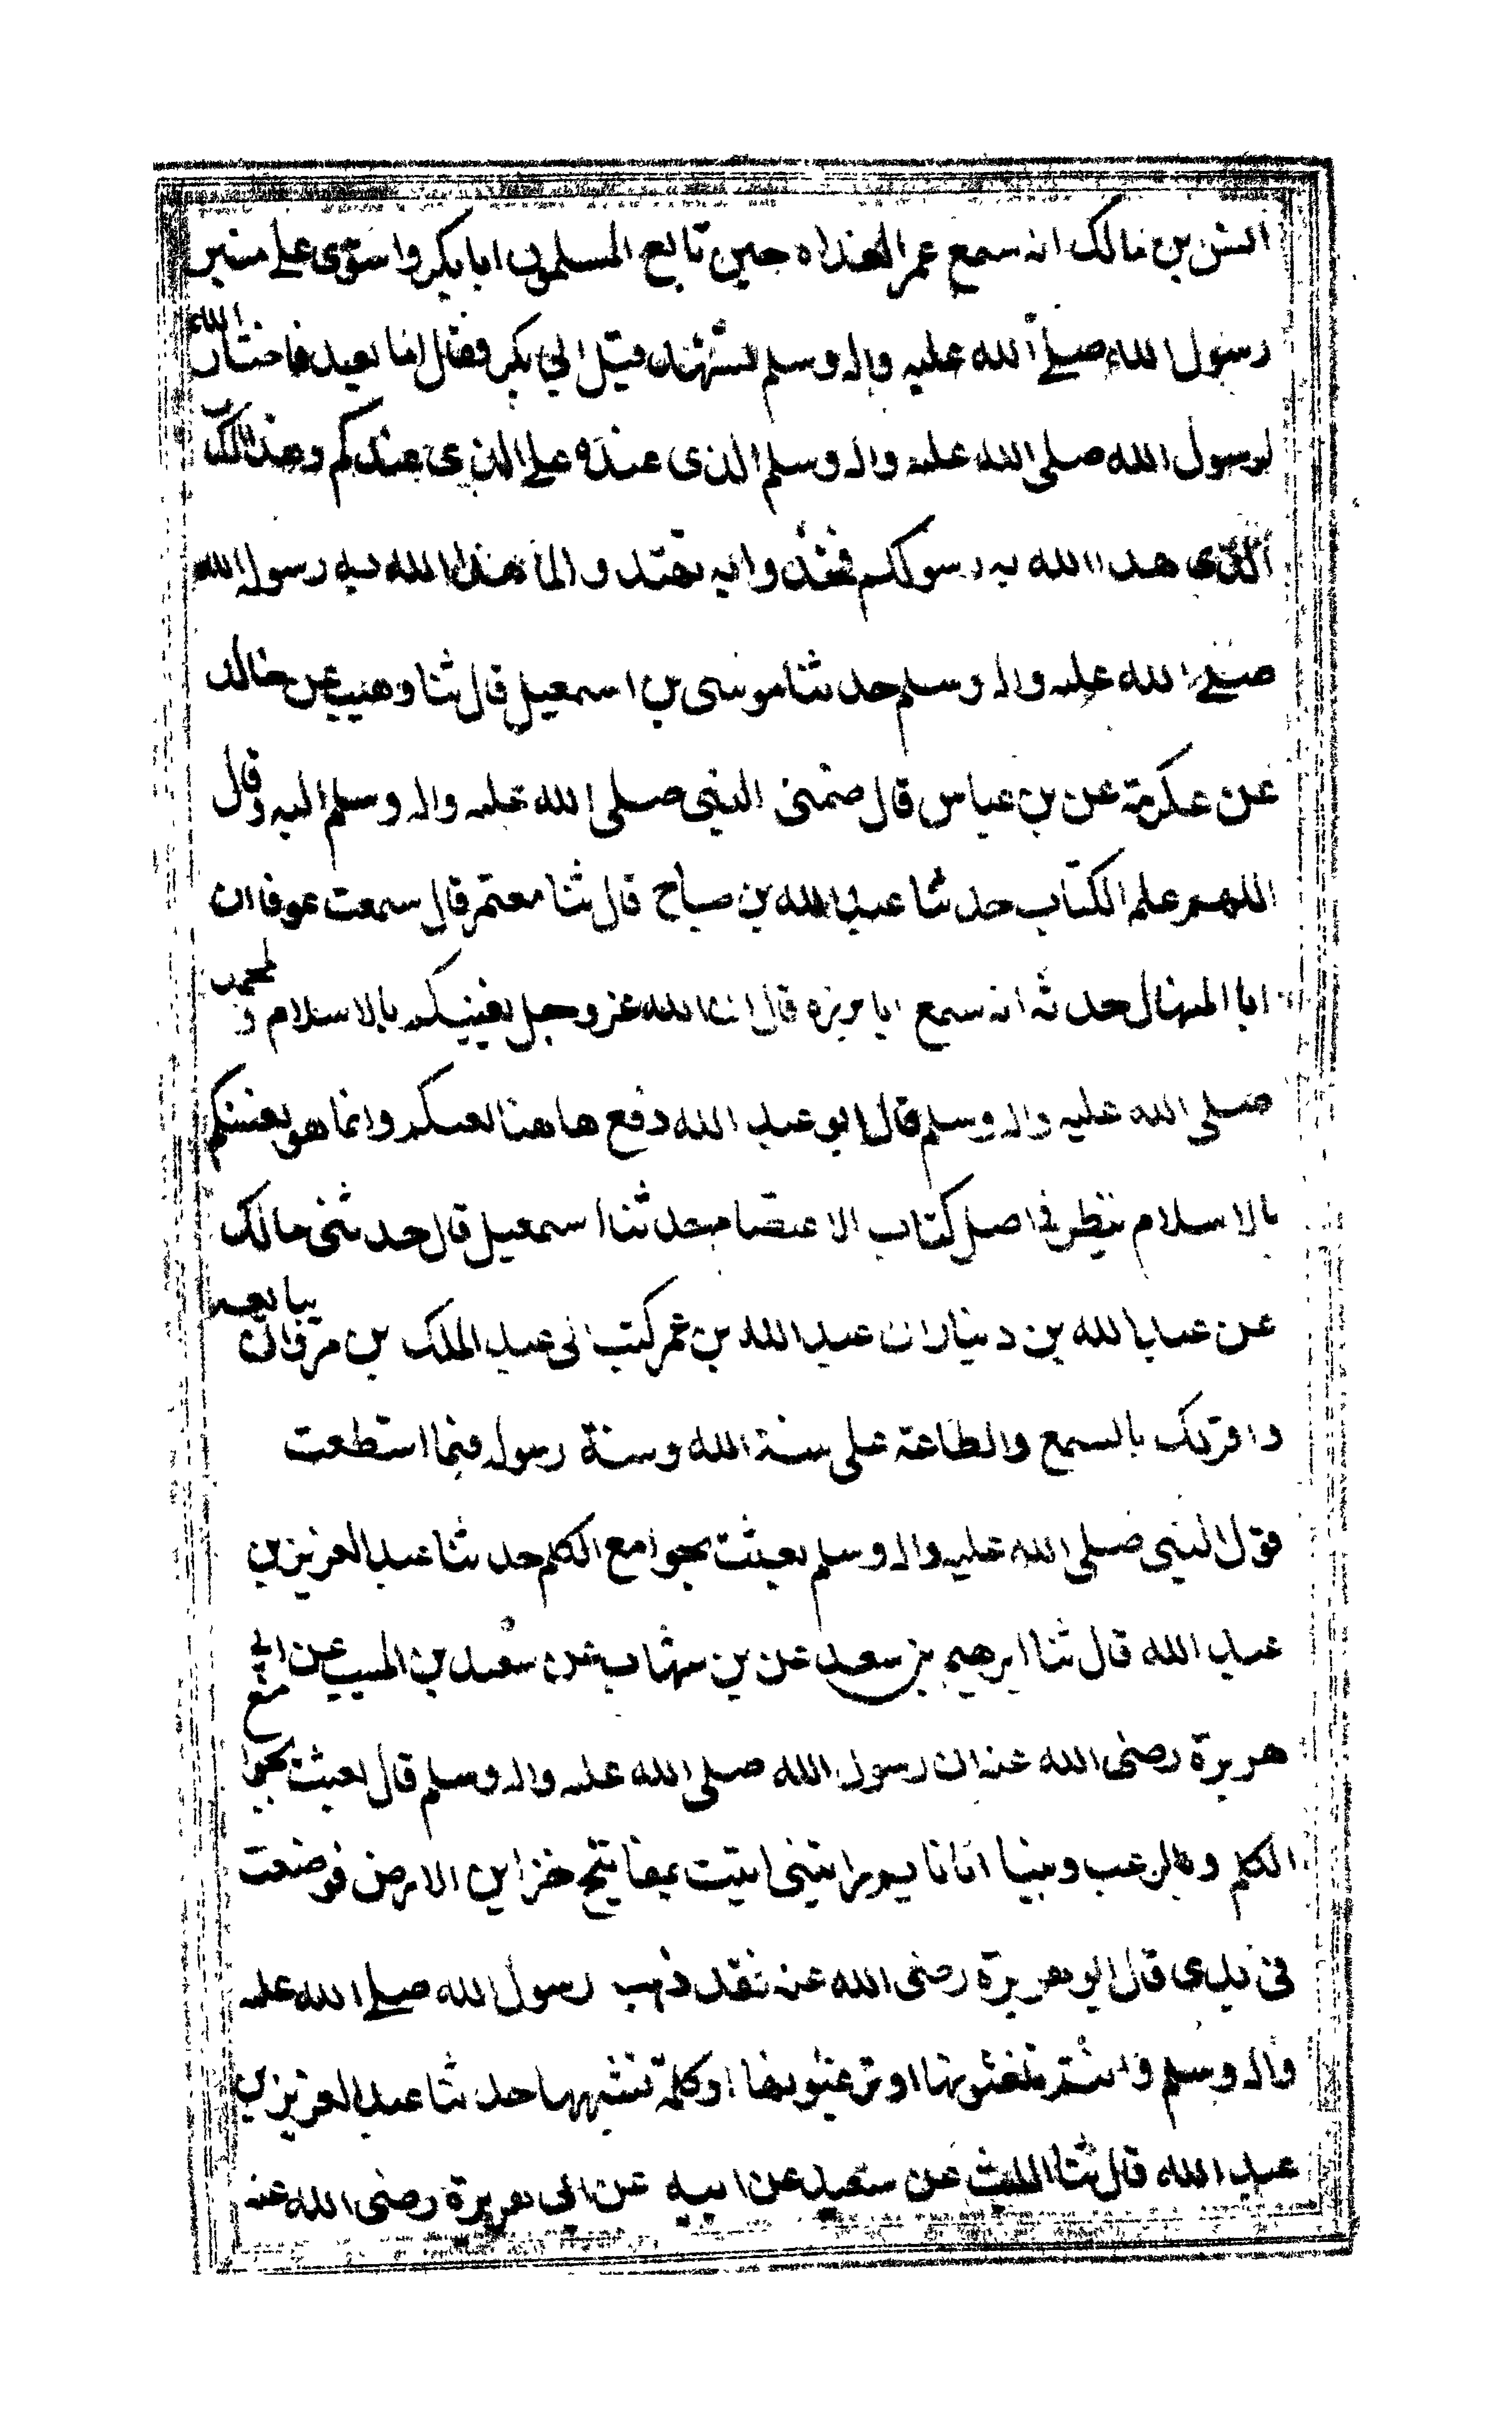 انس بن مالك انه سمع عمر الغداة حين تابع المسلمون ابابكر واستوى على منبر
رسول الله صلى الله عليه واله وسلم تشهد قبل ابي بكر فقال اما بعد فاختار الله
لرسول الله صلى الله عليه واله وسلم الذى عنده على الذى عندكم وهذا الكتاب
الذى هدا الله به رسولكم فخذوا به تهتدوا لما هذا الله به رسول الله
صلى الله عليه واله وسلم حدثنا موسى بن اسمعيل قال ثنا وهيب عن خالد
عن عكرمة عن بن عباس قال ضمنى النبى صلى الله عليه واله وسلم اليه وقال
اللهم علمه الكتاب حدثنا عبد الله بن صباح قال ثنا معتمر قال سمعت عوفا ان
ابا المنهال حدثه انه سمع ابا برزه قال ان الله عز وجل يغنيكم بالاسلام و لمحمد
صلى الله عليه واله وسلم قال ابو عبد الله دفع هاهنا لعسكر وانما هو نعشكم
بالاسلام ينظر فى اصل كتاب الاعتصام حدثنا اسمعيل قال حدثنى مالك
عن عبد الله بن دينار ان عبد الله بن عمر كتب الى عبد الملك بن مروان يبايعه
واقر بك بالسمع والطاعة على سنة الله وسنة رسوله فيما استطعت
قول النبى صلى الله عليه واله وسلم بعثت بجوامع الكلم حدثنا عبد العزيز بن
عبد الله قال ثنا ابرهيم بن سعد عن بن شهاب عن سعيد بن المسيب عن ابي
هريرة رضى الله عنه ان رسول الله صلى الله عليه واله وسلم قال بعثت بجوا مع
الكلم و بالرعب وبينا انا نايم رايتنى اتيت بمفاتيح خزاين الارض فوضعت
فى يدى قال ابو هريرة رضى الله عنه فقد ذهب رسول الله صلى الله عليه
واله وسلم وانتم تلغثونها او ترغثونها او كلمة تشبهها حدثنا عبد العزيز بن
عبد الله قال ثنا الليث عن سعيد عن ابيه عن ابى هريرة رضى الله عنه